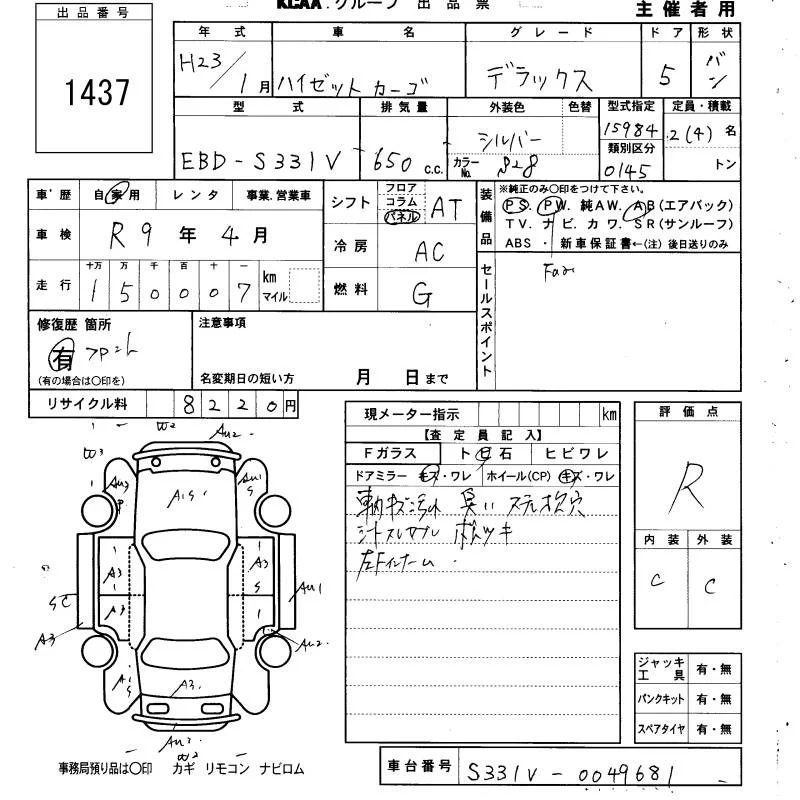 KCAA.グループ 出品票 主催者用
出品番号
1437
年式 車名 グレード ドア 形状
H23/1月 ハイゼットカーゴ デラックス 5 バン
型式 排気量 外装色 色替 型式指定 定員・積載
EBD-S331V 650 c.c. シルバー 15984 2(4)名
カラーNo. S28 類別区分 0145 トン
車歴 自家用 レンタ 事業.営業車
車検 R9年4月
走行 十万 万 千 百 十 一
150007 km マイル
シフト フロア コラム パネル AT
冷房 AC
燃料 G
装備品 ※純正のみ○印をつけて下さい。
PS. PW. 純AW. AB(エアバック)
TV. ナビ. カワ. SR(サンルーフ)
ABS ・ 新車保証書←(注)後日送りのみ
セールスポイント
修復歴 箇所
有 フロント
(有の場合は○印を)
注意事項
名変期日の短い方 月 日まで
リサイクル料 8220円
現メーター指示 km
【査定員記入】
Fガラス ト石 ヒビワレ
ドアミラー キズ・ワレ ホイール(CP) キズ・ワレ
車内キズ汚れ 臭い ステレオ欠穴
シートスレ
評価点
R
内装 外装
C C
W3 W2 AU2
AU3 P A1S AU1 S
A3 S A3 S AU1
SC A3 A3 AU2
A1 S A3
AU2 W2
ジャッキ工具 有・無
パンクキット 有・無
スペアタイヤ 有・無
事務局預り品は○印 カギ リモコン ナビロム
車台番号 S331V-0049681